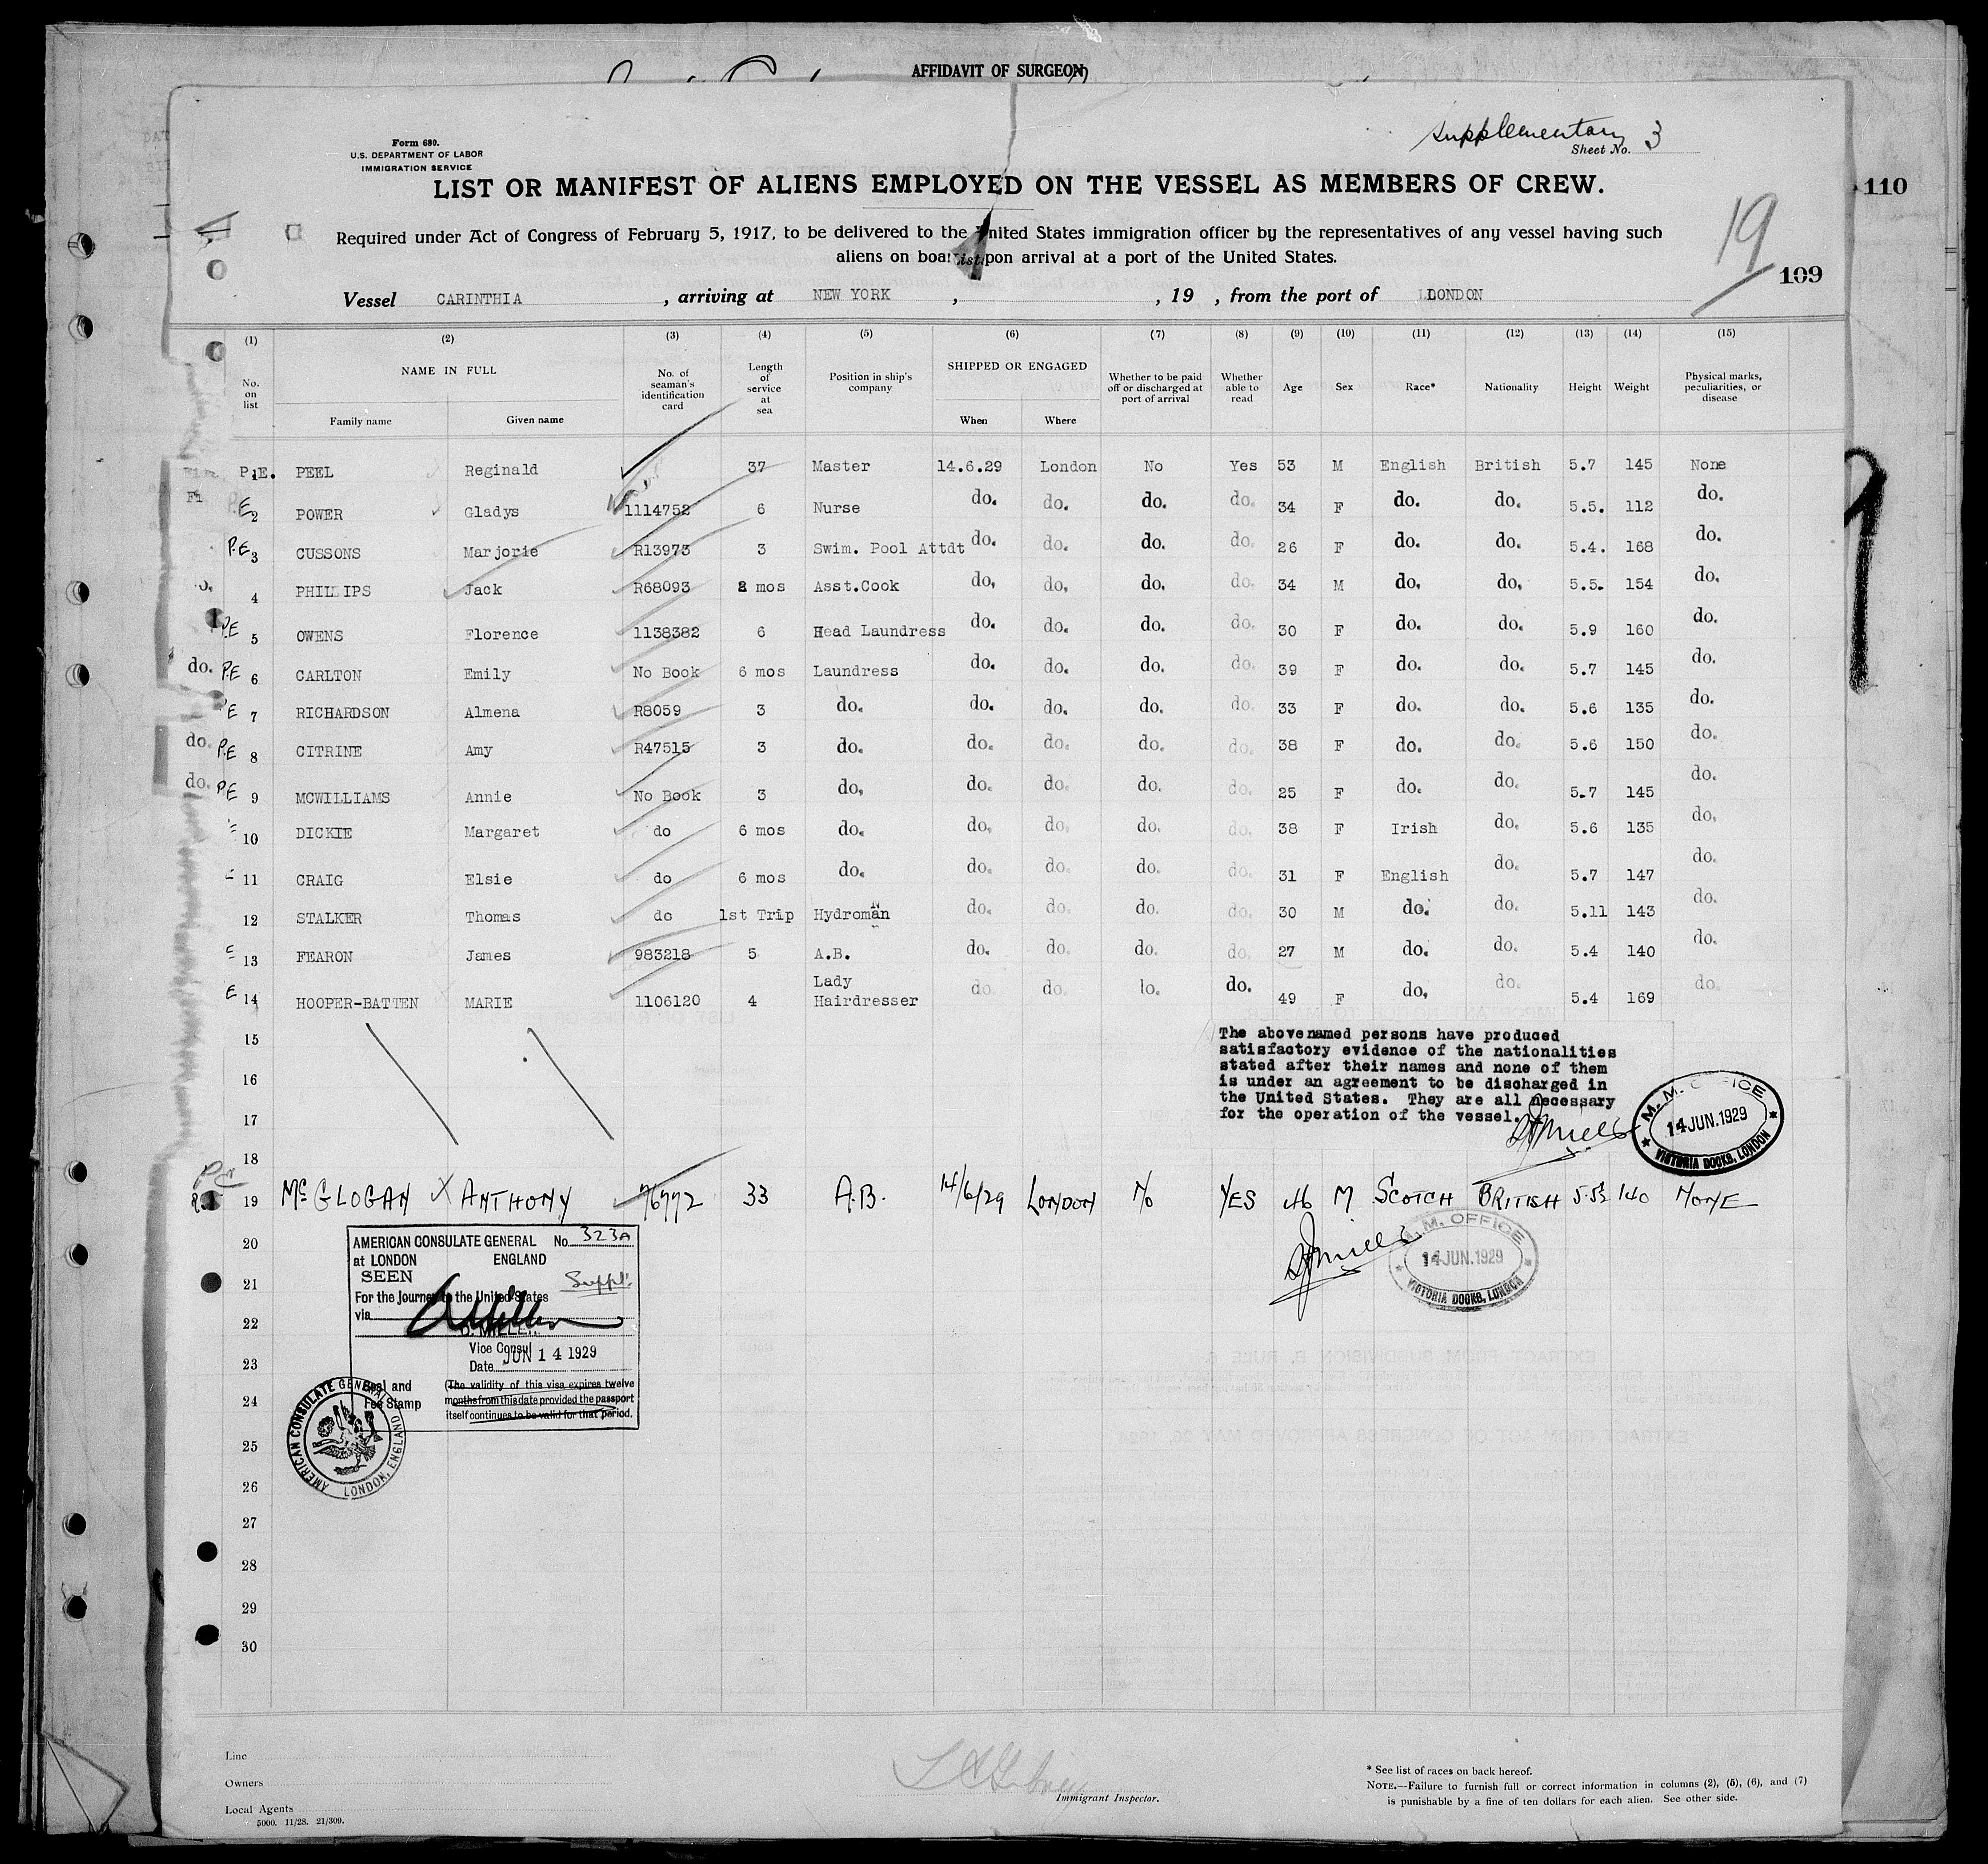 AFFIDAVIT OF SURGEON
Form 680.
U.S. DEPARTMENT OF LABOR
IMMIGRATION SERVICE
Supplementary
Sheet No. 3
LIST OR MANIFEST OF ALIENS EMPLOYED ON THE VESSEL AS MEMBERS OF CREW.
110
19
Required under Act of Congress of February 5, 1917, to be delivered to the United States immigration officer by the representatives of any vessel having such
aliens on board upon arrival at a port of the United States.
109
Vessel CARINTHIA , arriving at NEW YORK , , 19 , from the port of LONDON
(1) (2) (3) (4) (5) (6) (7) (8) (9) (10) (11) (12) (13) (14) (15)
No. on list NAME IN FULL Family name Given name No. of seaman's identification card Length of service at sea Position in ship's company SHIPPED OR ENGAGED When Where Whether to be paid off or discharged at port of arrival Whether able to read Age Sex Race* Nationality Height Weight Physical marks, peculiarities, or disease
P.E. 1 PEEL Reginald 37 Master 14.6.29 London No Yes 53 M English British 5.7 145 None
P.E 2 POWER Gladys 1114752 6 Nurse do. do. do. do. 34 F do. do. 5.5. 112 do.
P.E 3 CUSSONS Marjorie R13973 3 Swim. Pool Attdt do. do. do. do. 26 F do. do. 5.4. 168 do.
4 PHILLIPS Jack R68093 8 mos Asst.Cook do. do. do. do. 34 M do. do. 5.5. 154 do.
P.E 5 OWENS Florence 1138382 6 Head Laundress do. do. do. do. 30 F do. do. 5.9 160 do.
do. P.E 6 CARLTON Emily No Book 6 mos Laundress do. do. do. do. 39 F do. do. 5.7 145 do.
E 7 RICHARDSON Almena R8059 3 do. do. do. do. do. 33 F do. do. 5.6 135 do.
do. P.E 8 CITRINE Amy R47515 3 do. do. do. do. do. 38 F do. do. 5.6 150 do.
do. P.E 9 MCWILLIAMS Annie No Book 3 do. do. do. do. do. 25 F do. do. 5.7 145 do.
10 DICKIE Margaret do 6 mos do. do. do. do. do. 38 F Irish do. 5.6 135 do.
11 CRAIG Elsie do 6 mos do. do. do. do. do. 31 F English do. 5.7 147 do.
12 STALKER Thomas do 1st Trip Hydroman do. do. do. do. 30 M do. do. 5.11 143 do.
13 FEARON James 983218 5 A.B. do. do. do. do. 27 M do. do. 5.4 140 do.
E 14 HOOPER-BATTEN MARIE 1106120 4 Lady Hairdresser do. do. do. do. 49 F do. do. 5.4 169 do.
15
16
17
18
The abovenamed persons have produced
satisfactory evidence of the nationalities
stated after their names and none of them
is under an agreement to be discharged in
the United States. They are all necessary
for the operation of the vessel.
M. M. OFFICE
14 JUN. 1929
VICTORIA DOCKS, LONDON
19 McGLOGAN X ANTHONY 76772 33 A.B. 14/6/29 LONDON No YES 46 M SCOTCH BRITISH 5.5½ 140 NONE
M. M. OFFICE
14 JUN. 1929
VICTORIA DOCKS, LONDON
20
21
22
23
24
25
26
27
28
29
30
AMERICAN CONSULATE GENERAL No. 323A
at LONDON ENGLAND
SEEN Suppl.
For the Journey to the United States
via
Vice Consul
Date JUN 14 1929
Seal and Fee Stamp
(The validity of this visa expires twelve
months from this date provided the passport
itself continues to be valid for that period.
AMERICAN CONSULATE GENERAL
LONDON, ENGLAND
Line
Owners
Local Agents
5000. 11/28. 21/309.
Immigrant Inspector.
* See list of races on back hereof.
NOTE.—Failure to furnish full or correct information in columns (2), (5), (6), and (7)
is punishable by a fine of ten dollars for each alien. See other side.